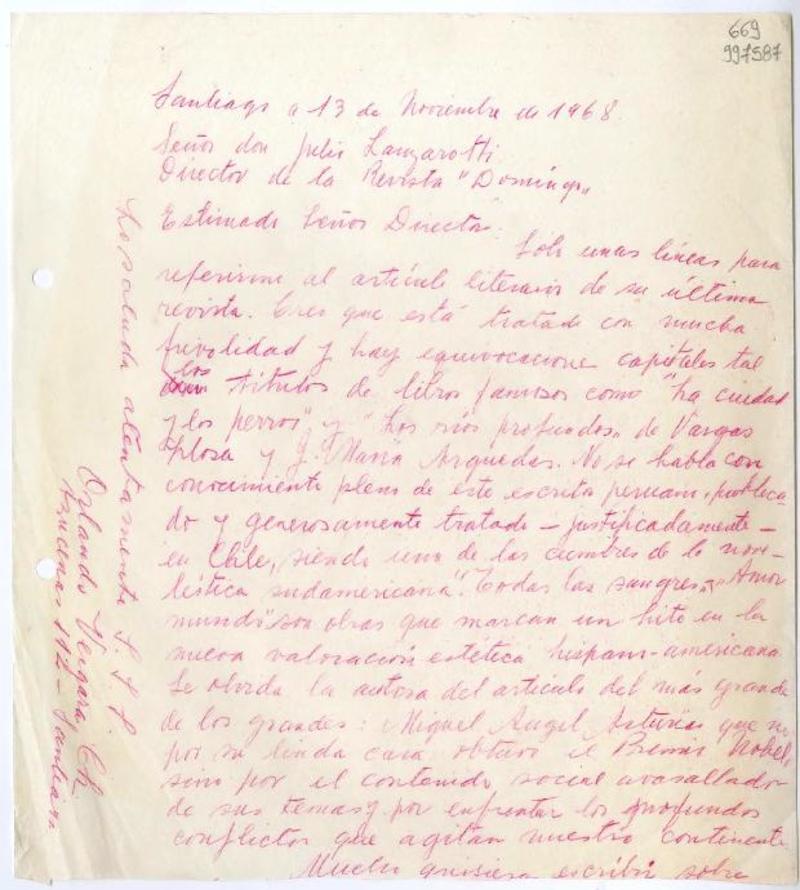 669
997587
Santiago a 13 de Noviembre de 1968
Señor don Julio Lanzarotti
Director de la Revista "Domingo"
Estimado Señor Director.
Sólo unas líneas para
referirme al artículo literario de su última
revista. Creo que está tratado con mucha
frivolidad y hay equivocaciones capitales tal
los títulos de libros famosos como "La ciudad
y los perros" y "Los ríos profundos" de Vargas
Llosa y J. María Arguedas. No se habla con
conocimiento pleno de este escritor peruano, publica-
do y generosamente tratado - justificadamente -
en Chile, siendo una de las cumbres de la nove-
lística sudamericana. "Todas las sangres", "Amor
mundo" son obras que marcan un hito en la
nueva valoración estética hispano-americana
Se olvida la autora del artículo del más grande
de los grandes: Miguel Angel Asturias que no
por su linda cara obtuvo el Premio Nobel,
sino por el contenido social avasallador
de sus temas y por enfrentar los profundos
conflictos que agitan nuestro continente
Mucho quisiera escribir sobre
Lo saluda atentamente S. S. S.
Orlando Vergara Ch.
Azucenas 112 - Santiago